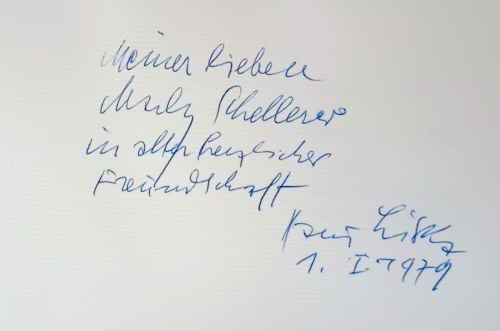 Meiner lieben
Schellerer
in alter herzlicher
Freundschaft
Hans Liska
1. I 1979